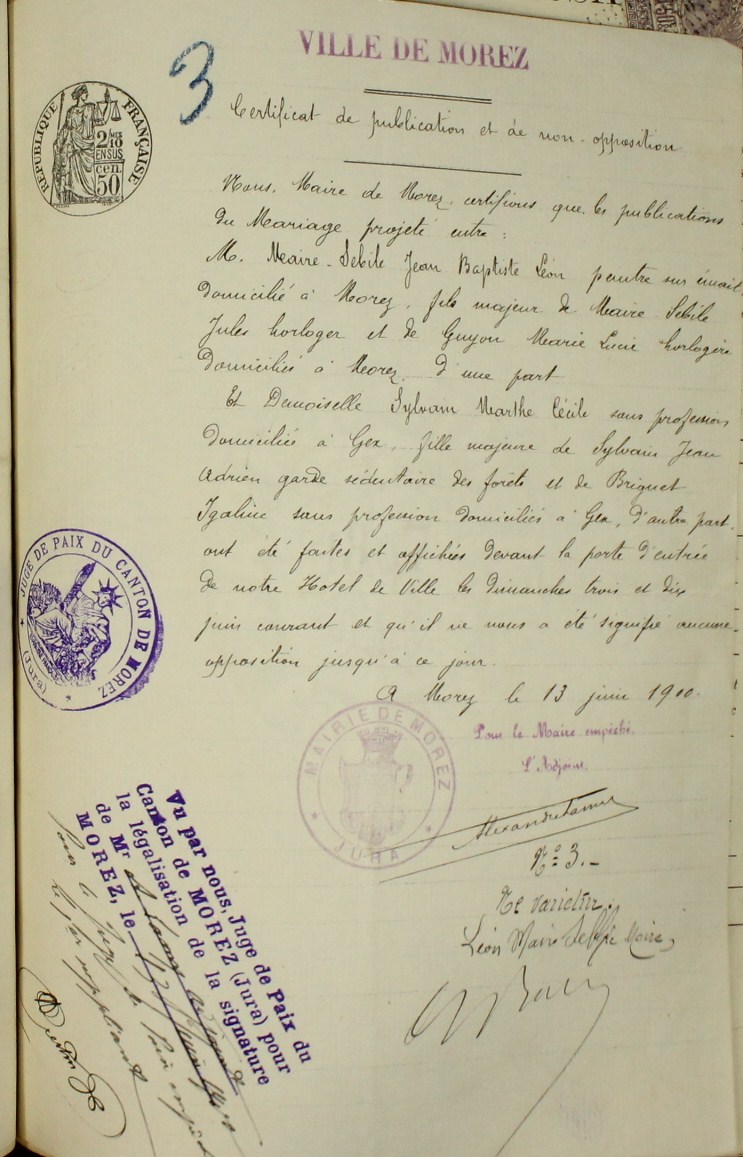 VILLE DE MOREZ
3
RÉPUBLIQUE FRANÇAISE
2/10
EN SUS
50 cen.
Certificat de publication et de non-opposition
Nous, Maire de Morez, certifions que les publications
du Mariage projeté entre:
M. Maire-Sebile Jean Baptiste Léon peintre sur émail
domicilié à Morez, fils majeur de Maire-Sebile
Jules horloger et de Guyon Marie Lucie horlogère
domiciliés à Morez, d'une part
Et Demoiselle Sylvain Marthe Cécile sans profession
domiciliée à Gex, fille majeure de Sylvain Jean
Adrien garde sédentaire des forêts et de Briguet
Igaline sans profession domiciliés à Gex, d'autre part,
ont été faites et affichées devant la porte d'entrée
de notre Hotel de Ville les dimanches trois et dix
juin courant et qu'il ne nous a été signifié aucune
opposition jusqu'à ce jour.
A Morez le 13 juin 1900.
JUGE DE PAIX DU CANTON DE MOREZ
(Jura)
MAIRIE DE MOREZ
JURA
Pour le Maire empêché
L'Adjoint
No 3.-
Ne varietur.
Léon Maire
Vu par nous, Juge de Paix du
Canton de MOREZ (Jura) pour
la légalisation de la signature
de Mr
MOREZ, le
suppléant